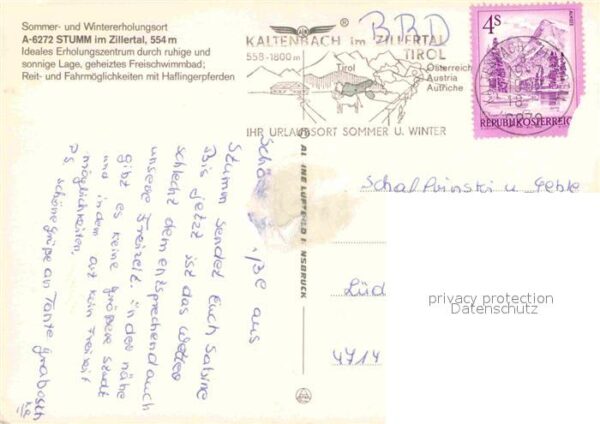 Sommer- und Wintererholungsort
A-6272 STUMM im Zillertal, 554 m
Ideales Erholungszentrum durch ruhige und
sonnige Lage, geheiztes Freischwimmbad;
Reit- und Fahrmöglichkeiten mit Haflingerpferden
BRD
KALTENBACH im ZILLERTAL
TIROL
558-1800 m
Tirol
Österreich
Austria
Autriche
IHR URLAUBSORT SOMMER U. WINTER
4 S
REPUBLIK ÖSTERREICH
aus
Stumm sendet Euch Sabine
Bis jetzt ist das Wetter
schlecht dementsprechend auch
unsere Freizeit. In der nähe
gibt es keine größere Stadt
und in dem ort kein Freizeit
möglichkeiten.
PS schöne grüße an Tante
u.
Lüd
4714
privacy protection
Datenschutz